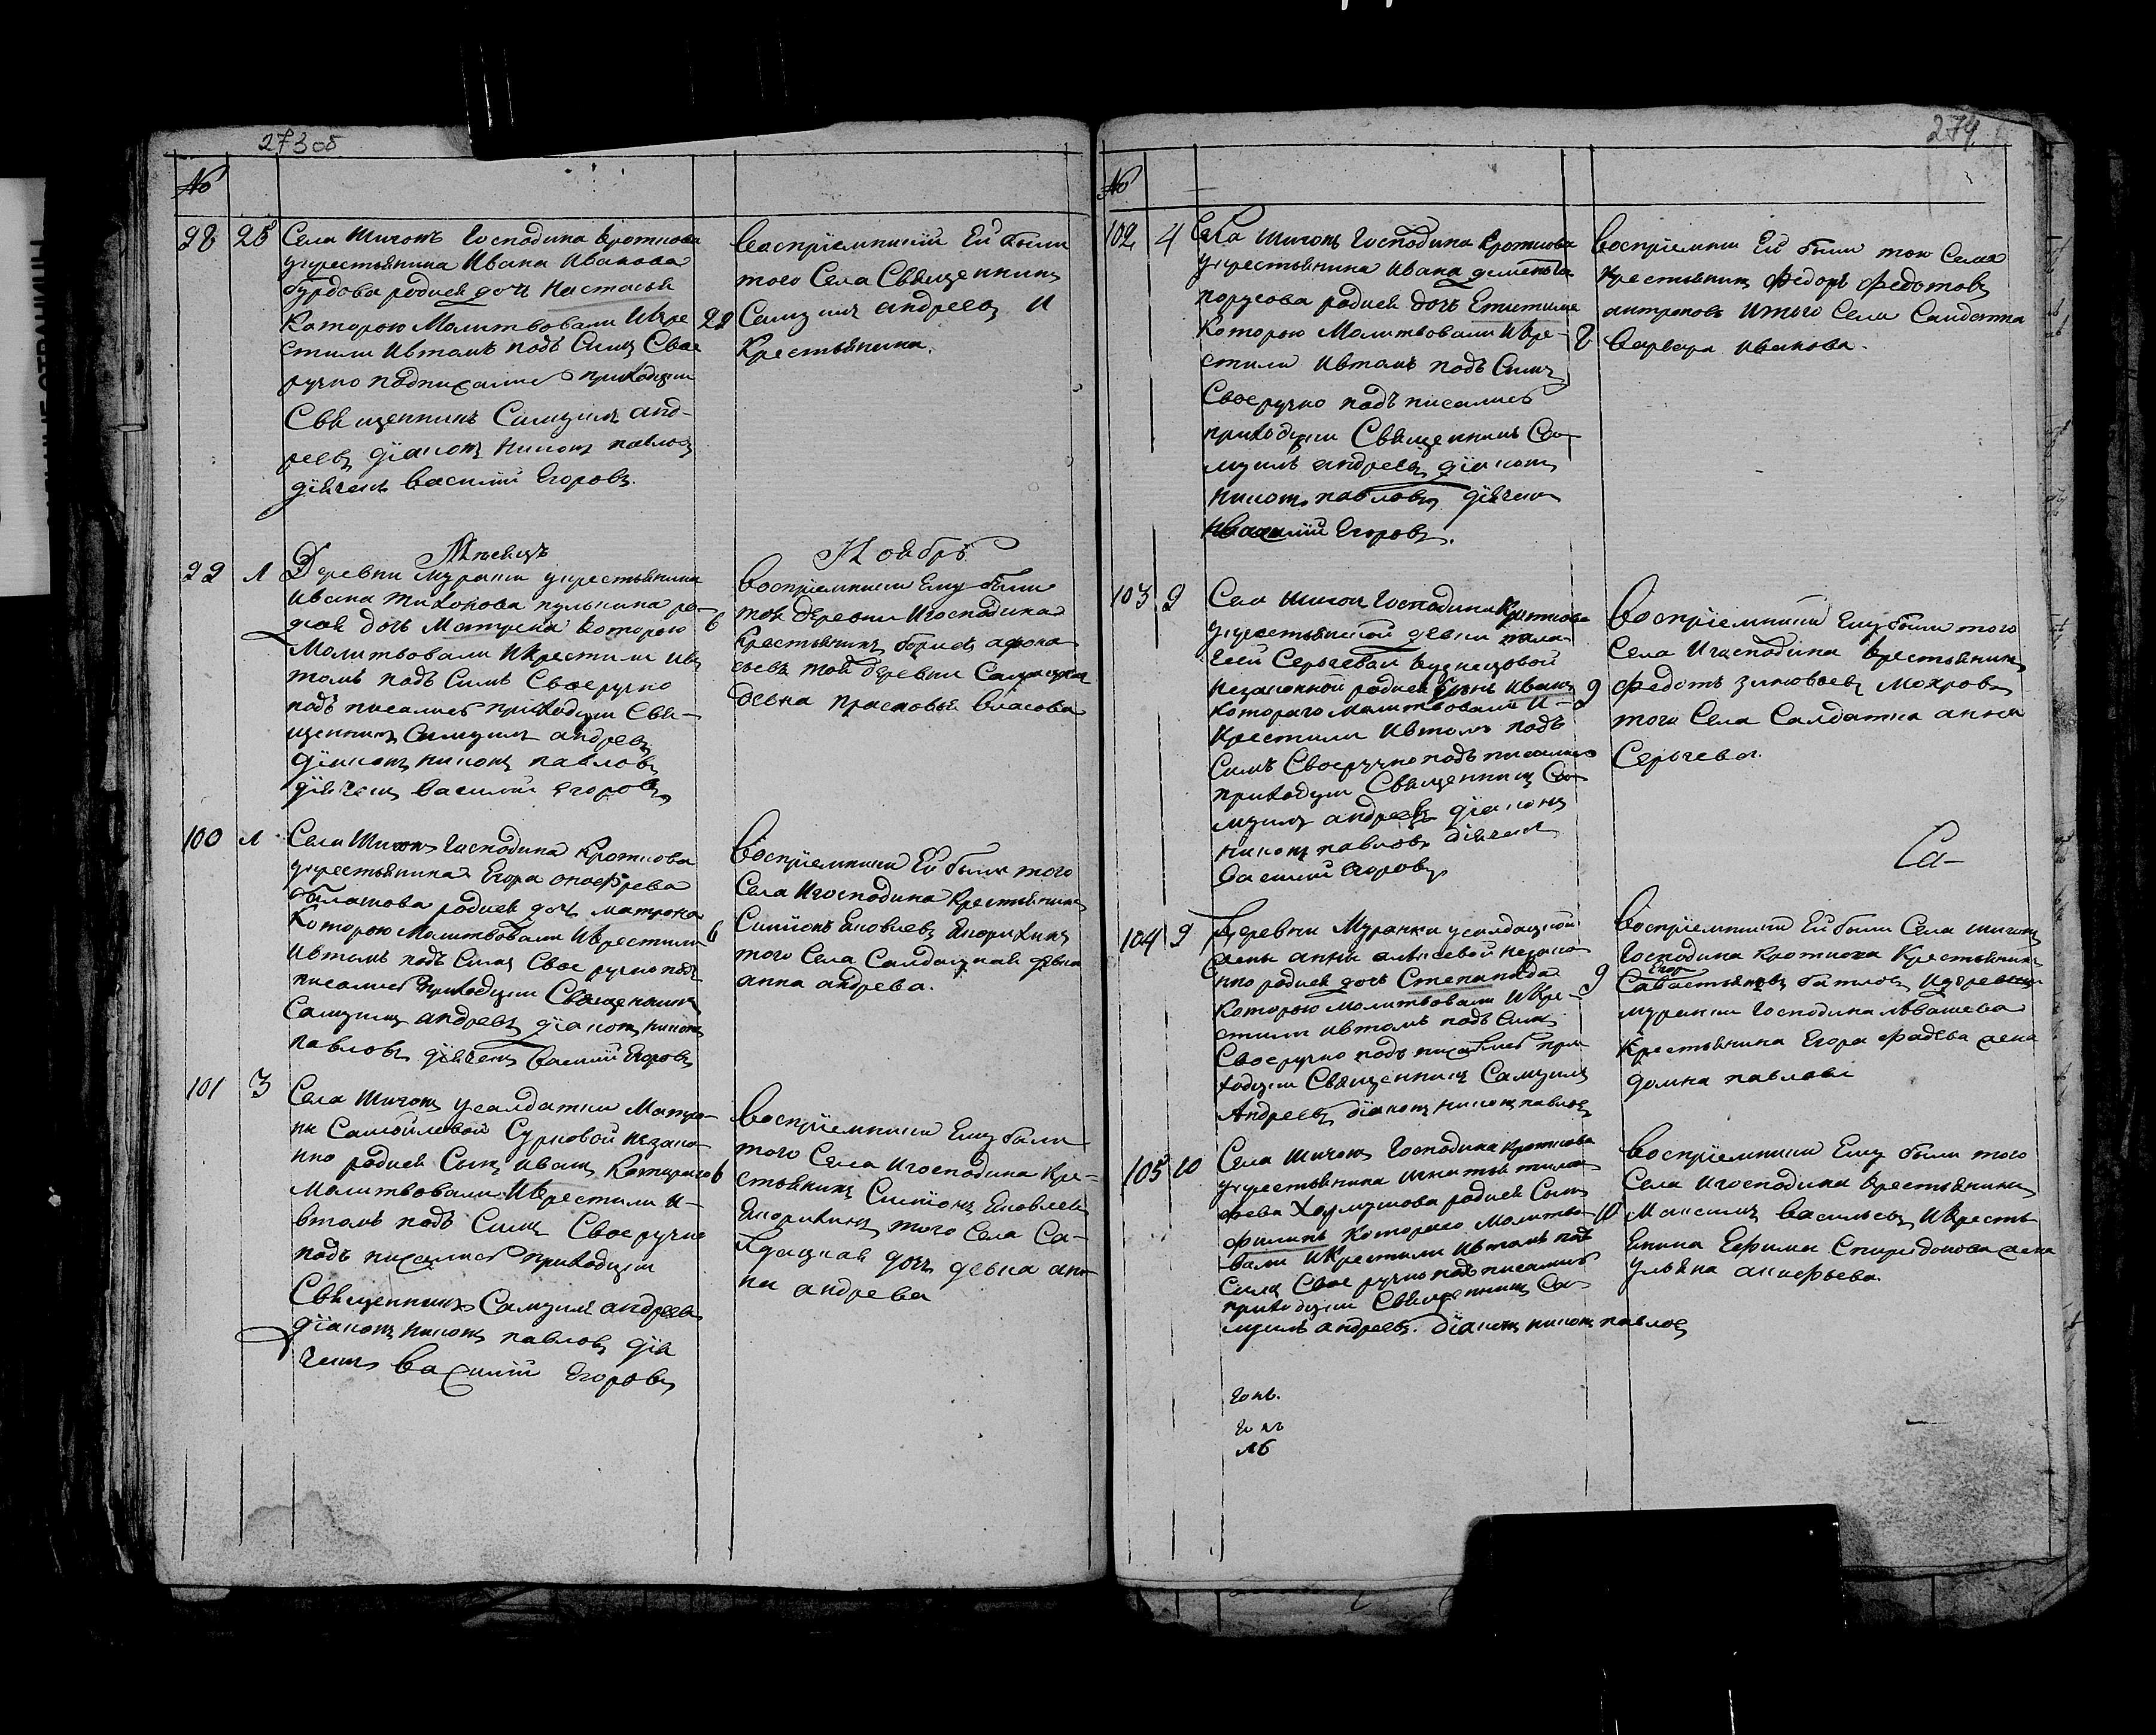 273об
№
98 28 Села Шигонъ Господина Кроткова
укрестьянина Ивана Иванова
бурдова родися дочь Настасья
которою Молитвовали Икре 29
стили Ивтомъ подъ Симъ Свое
ручно подписались приходцкии
Священникъ Самуилъ анд-
реевъ дiаконъ Никонъ павловъ
дiячекъ Василïй Егоровъ.
Воспрïемники Ей были
того Села Священникъ
Самуилъ андреевъ И
Крестьянина.
Мѣсяцъ Ноябрь
99 1 Деревни Муранки укрестьянина
Ивана Тихонова пулькина ро-
дися дочь Матрена которою 6
Молитвовали Икрестили ив
томъ подъ Симъ Своеручно
подъ писались приходцки Свя-
щенникъ Самуилъ андреевъ
дiаконъ никонъ павловъ
дiячекъ Василïй Егоровъ
Воспрïемники Ему были
той деревни Игосподина
Крестьянинъ борисъ афона
сьевъ той деревни Салдацкая
девка прасковья власова
100 1 Села Шигонъ Господина Кроткова
укрестьянина Егора онофрева
балашова родися дочь матрона
Которою Молитвовали Икрестили 6
Ивтомъ подъ Симъ Свое ручно подъ
писались Приходцки Священникъ
Самуилъ андреевъ дiаконъ никонъ
павловъ дiячекъ Василïй Егоровъ
Воспрïемники Ей были того
Села Игосподина Крестьянинъ
Симïонъ Яковлевъ
того Села Салдацкая девка
анна андрева.
101 3 Села Шигонъ усалдатки Матро-
ны Самойлевой Сурковой незако-
нно родися Сынъ иванъ Которого 6
Молитвовали Икрестили и-
втомъ подъ Симъ Своеручно
подъ писались приходцки
Священникъ Самуилъ андреевъ
дiаконъ никонъ павловъ дiя
чекъ Василïй Егоровъ
Воспрïемники Ему были
того Села Игосподина Кре-
стьянинъ Симïонъ Яковлевъ
того Села Са-
лдацкая дочь девка анн
на андрева
274
№
102 4 Села Шигонъ Господина Кроткова
укрестьянина Ивана деменьтева
порусова родися дочь
Которою Молитвовали Икре- 8
стили Ивтомъ подъ Симъ
Своеручно подъ писались
приходцки Священникъ Са-
муилъ андреевъ дiаконъ
никонъ павловъ дiячекъ
Василïй Егоровъ.
Воспрïемники Ей были того Села
Крестьянинъ Федоръ Федотовъ
антроповъ Итого Села Салдатка
Варвара Иванова.
103 9 Села Шигонъ Господина Кроткова
укрестьянской девки пела-
геи Сергеевой Кузнецовой
Незаконной родися Сынъ Иванъ 9
Которого Молитвовали И-
крестили Ивтомъ подъ
Симъ Своеручно подъ писались
приходцки Священникъ Са-
муилъ андреевъ дiаконъ
никонъ павловъ дiячекъ
Василïй Егоровъ
Воспрïемники Ему были того
Села Игосподина Крестьянинъ
Федотъ зиновьевъ Мохровъ
того Села Салдатка анна
Сергева.
Са-
104 9 Деревни Муранки усалдацкой
жены анны алексевой незако
нно родися дочь Степанида 9
Которою молитвовали Икре-
стили ивтомъ подъ Симъ
Своеручно подъ писались при-
ходцки Священникъ Самуилъ
Андреевъ дiаконъ никонъ павловъ
Воспрïемники Ей были Села шигонъ
Господина Кроткова Крестьянинъ
Егор
Савастьяновъ Идеревни
муранки Господина Ивашева
Крестьянина Егора Фадева жена
домна павлова
105 10 Села Шигонъ Господина кроткова
укрестьянина игнатья тимо
фева Хармушова родися Сынъ
филипъ Которого Молитво- 10
вали Икрестили Ивтомъ подъ
Симъ Свое ручно подъ писались
приходцки Священникъ Са-
муилъ андреевъ. дiаконъ никонъ павловъ
Воспрïемники Ему были того
Села Игосподина Крестьянинъ
Максимъ Васильевъ Икресть
янина Ефима Спиридонова жена
Ульяна